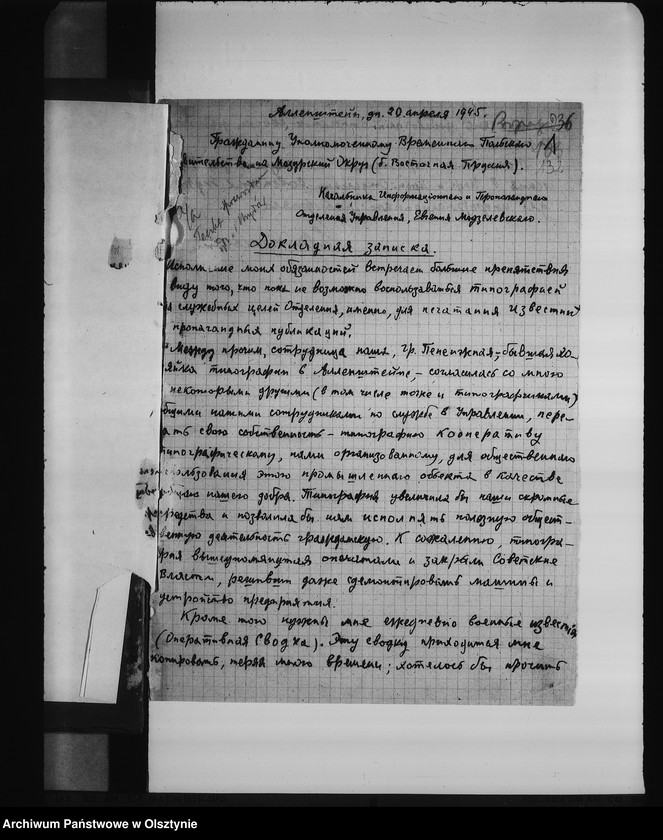 Алленштейн, дн. 20 апреля 1945.
36
Гражданину Уполномоченному Временного Польского
вительства на Мазурский Округ (б. Восточная Пруссия).
132
Начальника Информационного и Пропагандного
Отделения Управления, Евгения Модзелевского.
Докладная записка.
Исполнение моих обязанностей встречает большие препятствия
виду того, что пока не возможно воспользоваться типографией
служебных целей Отделения, именно, для печатания известий
пропагандных публикаций.
Между прочим, сотрудница наша, гр. Пененжная, - бывшая хо-
яйка типографии в Алленштейне, - согласилась со мною
некоторыми другими (в том числе тоже и типографскими)
бщими нашими сотрудниками по службе в Управлении, пере-
ать свою собственность - типографию Кооперативу
типографическому, нами организованному, для общественного
спользования этого промышленного объекта в качестве
общаго нашего добра. Типография увеличила бы наши скромные
средства и позволила бы нам исполнять полезную общест-
венную деятельность гражданскую. К сожалению, типогра-
фия вышеупомянутая опечатали и закрыли Советские
Власти, решивши даже сдемонтировать машины и
устройство предприятия.
Кроме того нужны мне ежедневно военные известия
(Оперативная Сводка). Эту сводку приходится мне
копировать, теряя много времени; хотелось бы просить
Archiwum Państwowe w Olsztynie